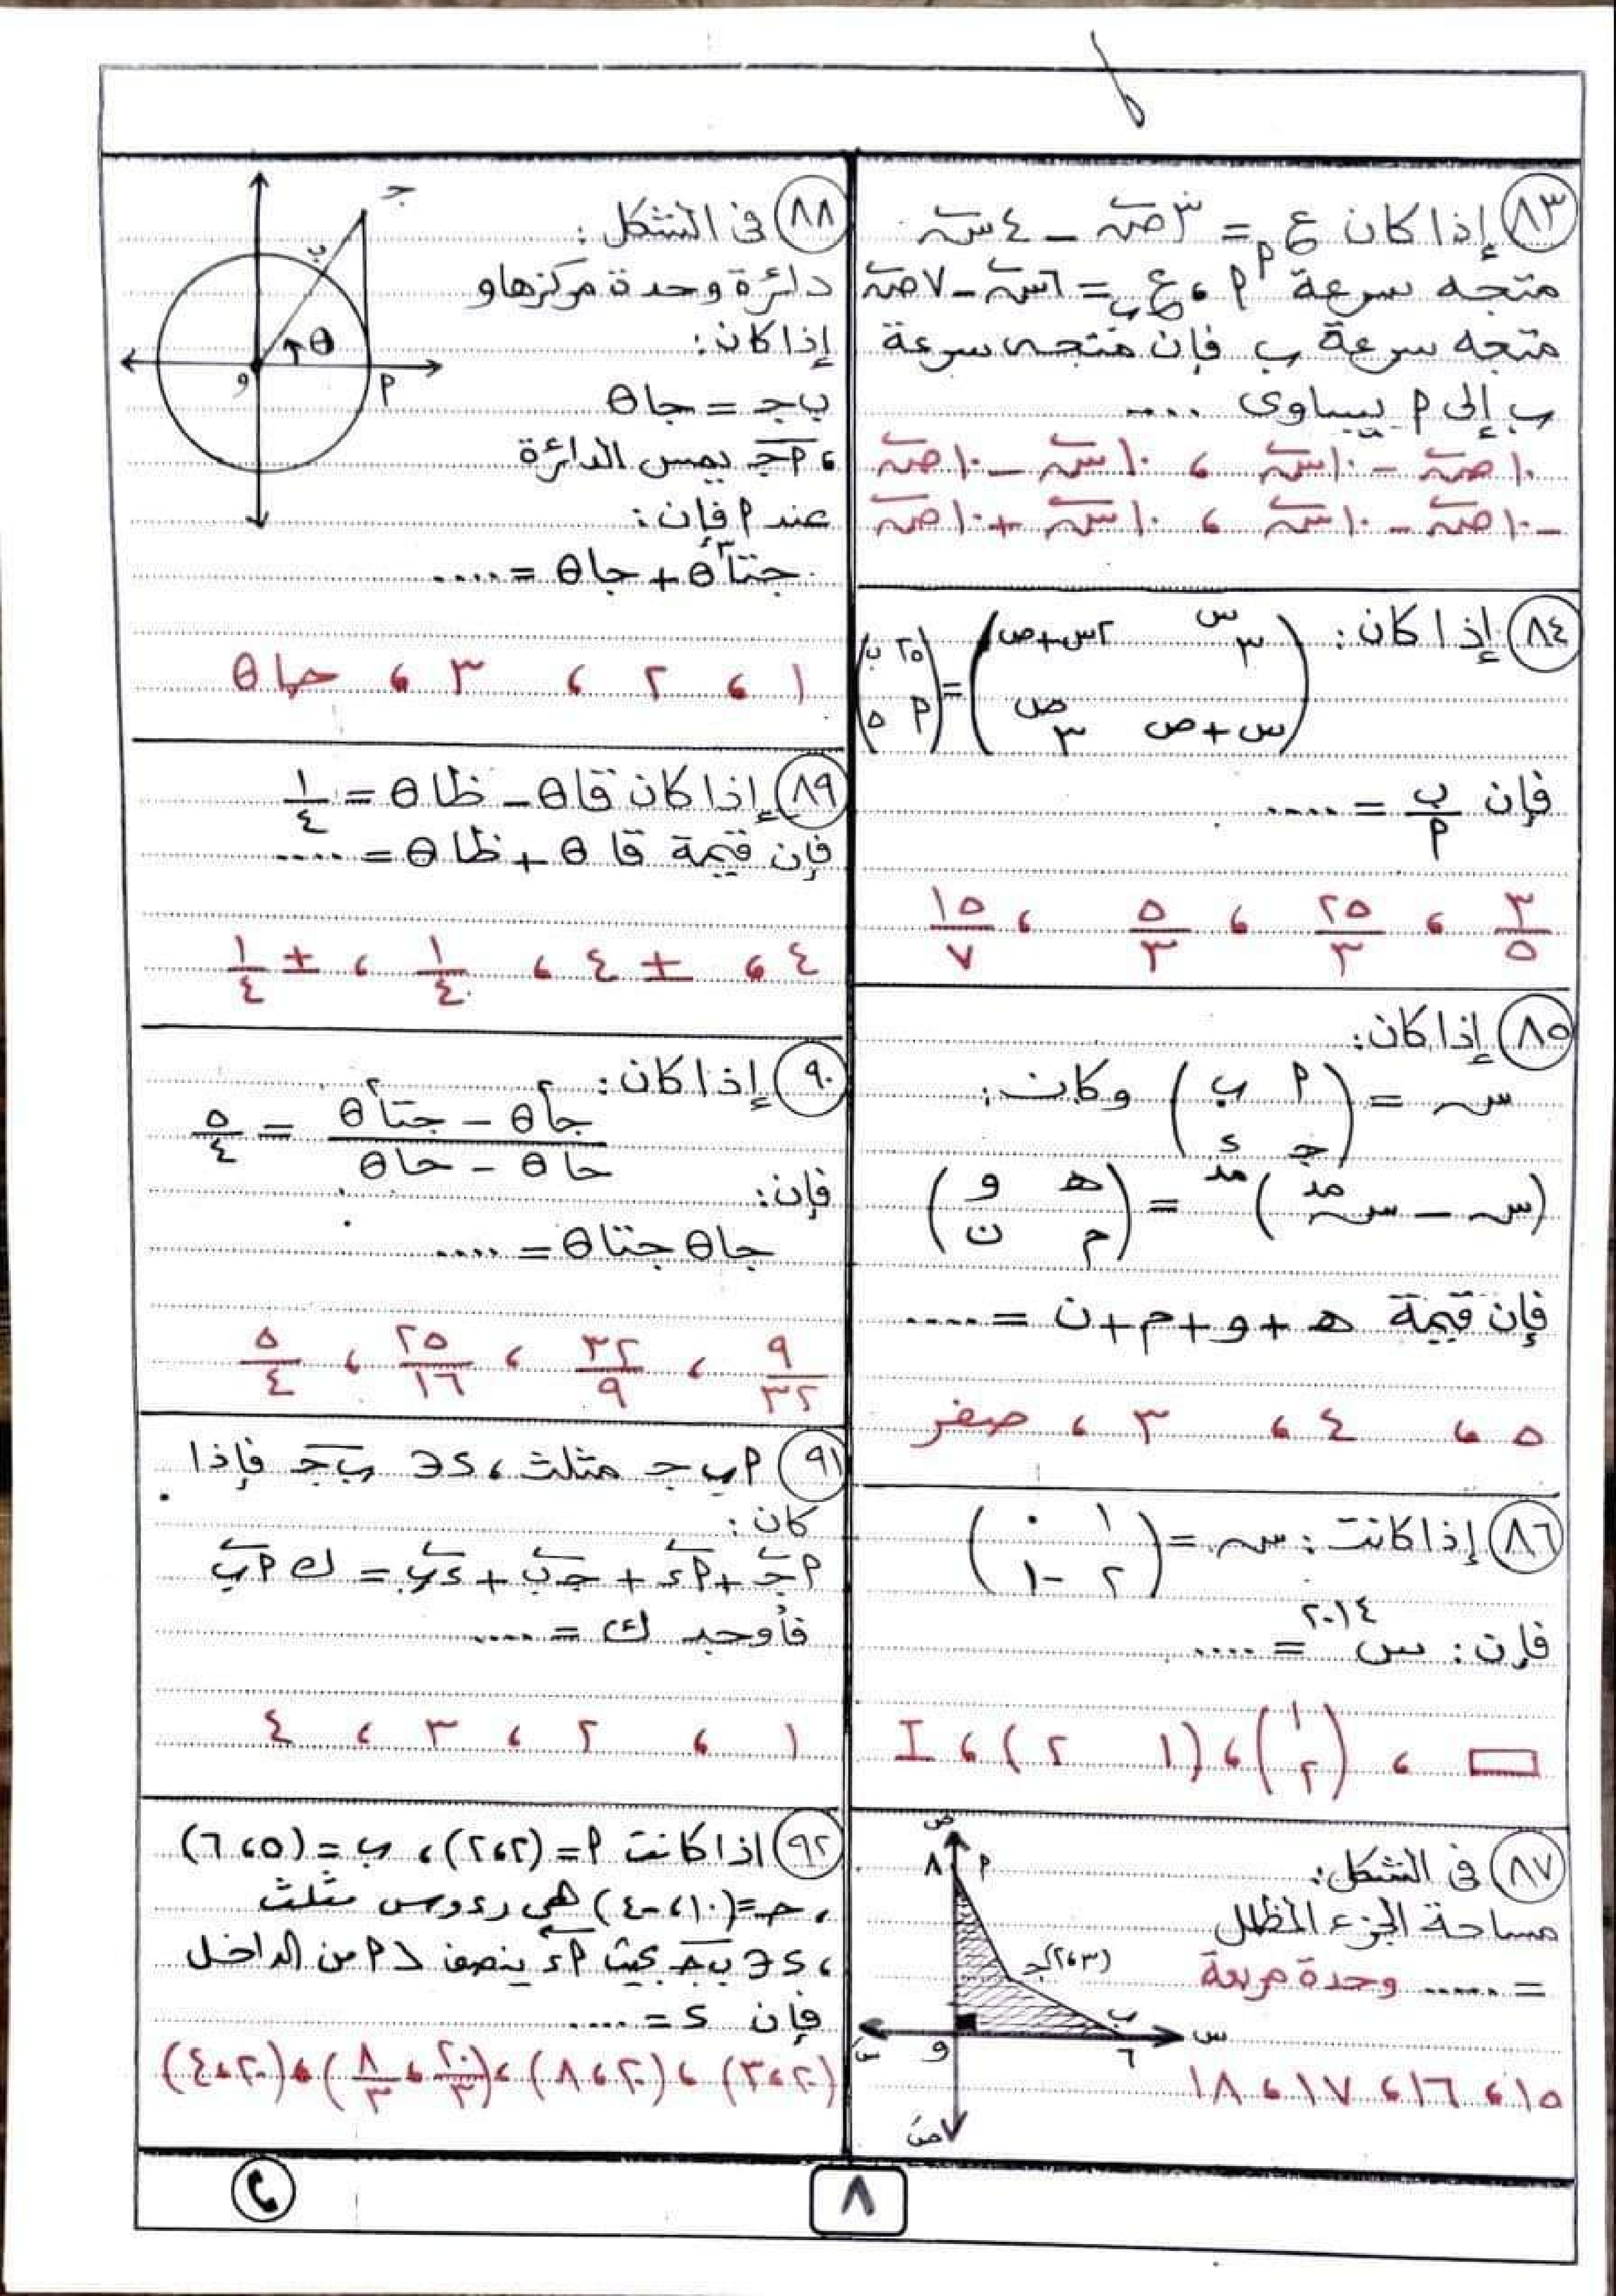 ٨٣ إذا كان ع م = ٣ص - ٤س
متجه سرعة م ، ع ب = ٦س - ٧ص
متجه سرعة ب فإن متجه سرعة
ب إلى م يساوى ....
١٠ص - ١٠س ، ١٠س - ١٠ص
-١٠ص - ١٠س ، ١٠س + ١٠ص
٨٤ إذا كان : ( ٣^س ٢س+ص
س+ص ٣^ص ) = ( ٢٥ ب
م ٥ )
فإن ب/م = ....
٣/٥ ، ٢٥/٣ ، ٥/٣ ، ١٥/٧
٨٥ إذا كان:
س = ( م ب
ج د ) وكان:
(س - س^مد)^مد = ( ه و
م ن )
فإن قيمة ه + و + م + ن = ....
٥ ، ٤ ، ٣ ، صفر
٨٦ إذا كانت : س = ( ١ ٠
٢ -١ )
فإن : س^٢٠١٤ = ....
▭ ، ( ١
٢ ) ، ( ١ ٢ ) ، I
٨٧ فى الشكل :
مساحة الجزء المظلل
= ..... وحدة مربعة
١٥ ، ١٦ ، ١٧ ، ١٨
ص
٨ م
ج(٣،٢)
ب
س
سَ و ٦
صَ
٨٨ فى الشكل :
دائرة وحدة مركزها و
إذا كان:
ب ج = جا θ
، م ج يمس الدائرة
عند م فإن :
جتا^٣ θ + جا θ = ....
١ ، ٢ ، ٣ ، جا θ
ج
ب
θ
و م
٨٩ إذا كان قا θ - ظا θ = ١/٤
فإن قيمة قا θ + ظا θ = ....
٤ ، ± ٤ ، ١/٤ ، ± ١/٤
٩٠ إذا كان :
(جا^٢ θ - جتا^٢ θ)/(جا θ - جا θ) = ٥/٤
فإن:
جا θ جتا θ = ....
٩/٣٢ ، ٣٢/٩ ، ٢٥/١٦ ، ٥/٤
٩١ م ب ج مثلث ، د ∈ ب ج فإذا
كان :
م ج + م د + ج ب + د ب = ك م ب
فأوجد ك = ....
١ ، ٢ ، ٣ ، ٤
٩٢ اذا كانت م = (٢،٢) ، ب = (٥،٦)
، ج = (١٠،-٤) هى رءوس مثلث
، د ∈ ب ج بحيث م د ينصف د م من الداخل
فإن د = ....
(٢٠،٣) ، (٢٠،٨) ، (٢٠/٣ ، ٨/٣) ، (٢٠،٤)
٨